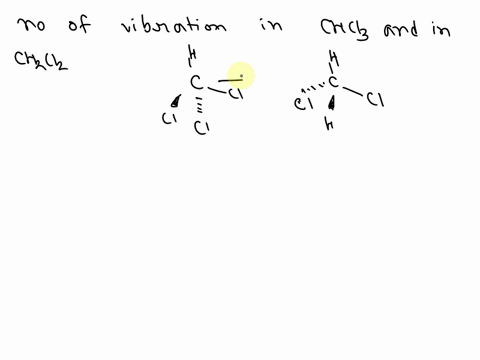 no of vibration in CHCl3 and in
CH2Cl2
H
C
Cl
Cl
Cl
H
C
Cl
Cl
H